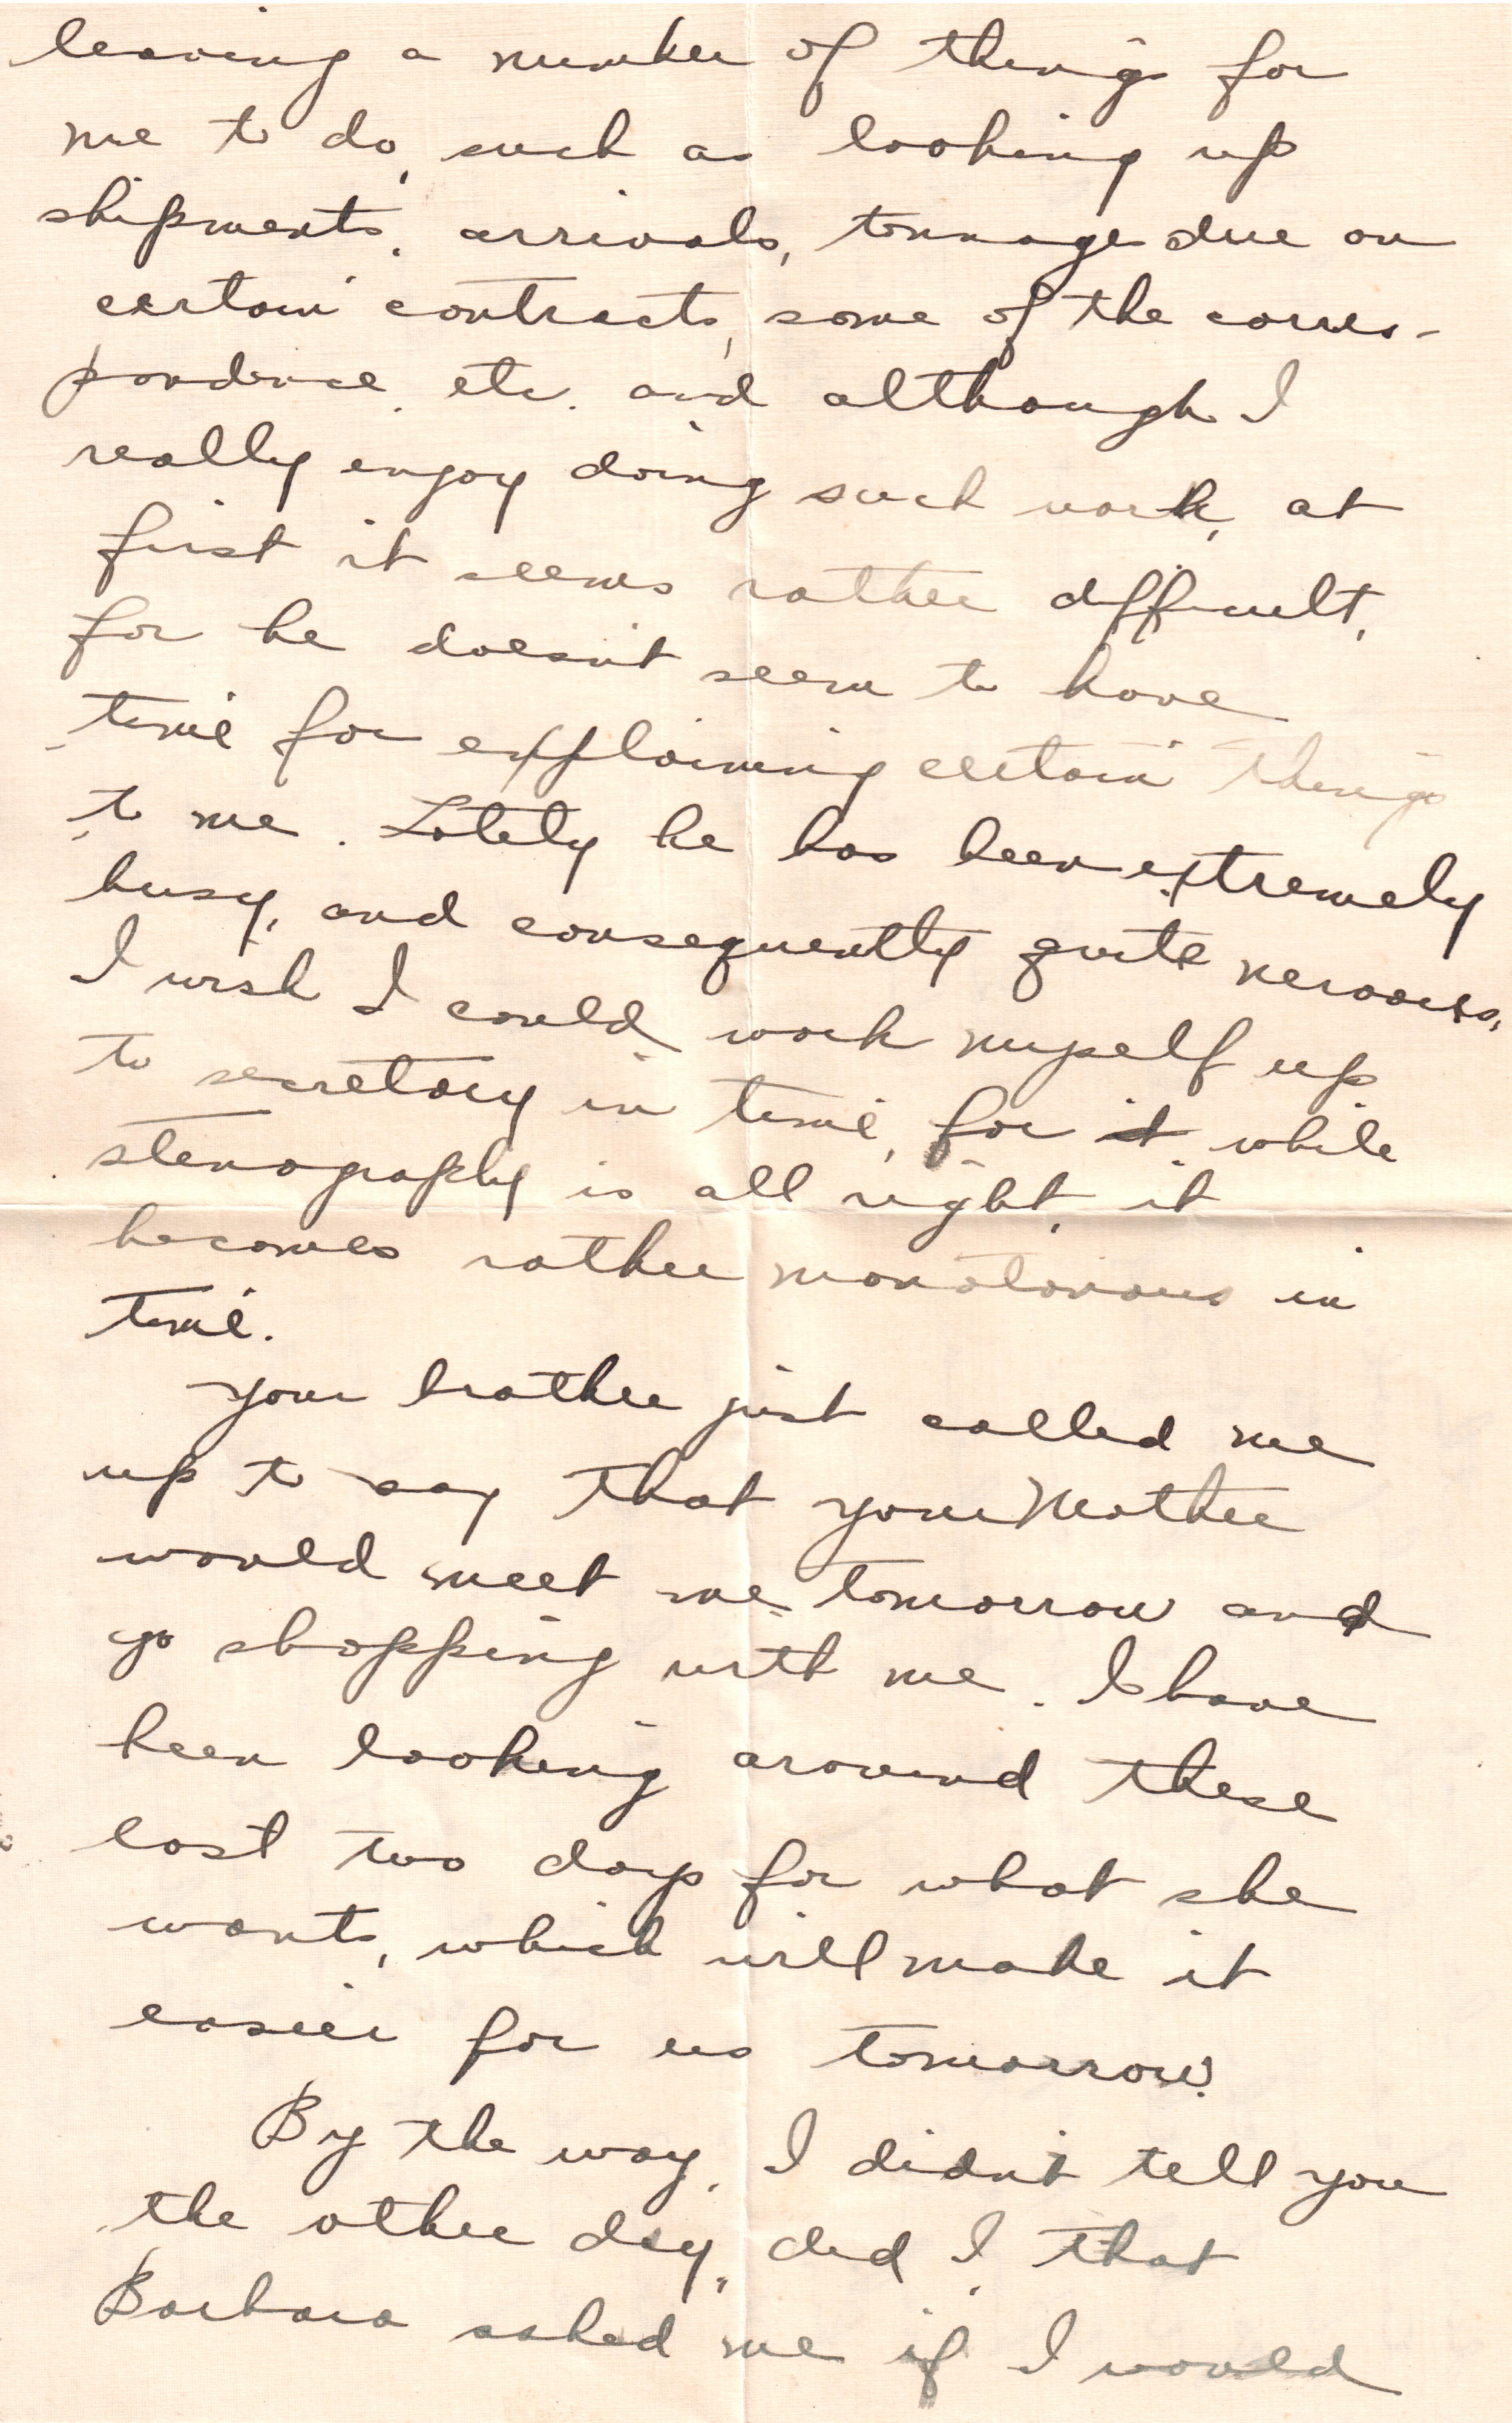 leaving a number of things for
me to do, such as looking up
shipments, arrivals, tonnage due on
certain contracts, some of the corres-
pondence, etc. and although I
really enjoy doing such work, at
first it seems rather difficult,
for he doesn't seem to have
time for explaining certain things
to me. Lately he has been extremely
busy, and consequently quite nervous.
I wish I could work myself up
to secretary in time, for it while
stenography is all right, it
becomes rather monotonous in
time.
Your brother just called me
up to say that your Mother
would meet me tomorrow and
go shopping with me. I have
been looking around these
last two days for what she
wants, which will make it
easier for us tomorrow.
By the way, I didn't tell you
the other day, did I, that
Barbara asked me if I would